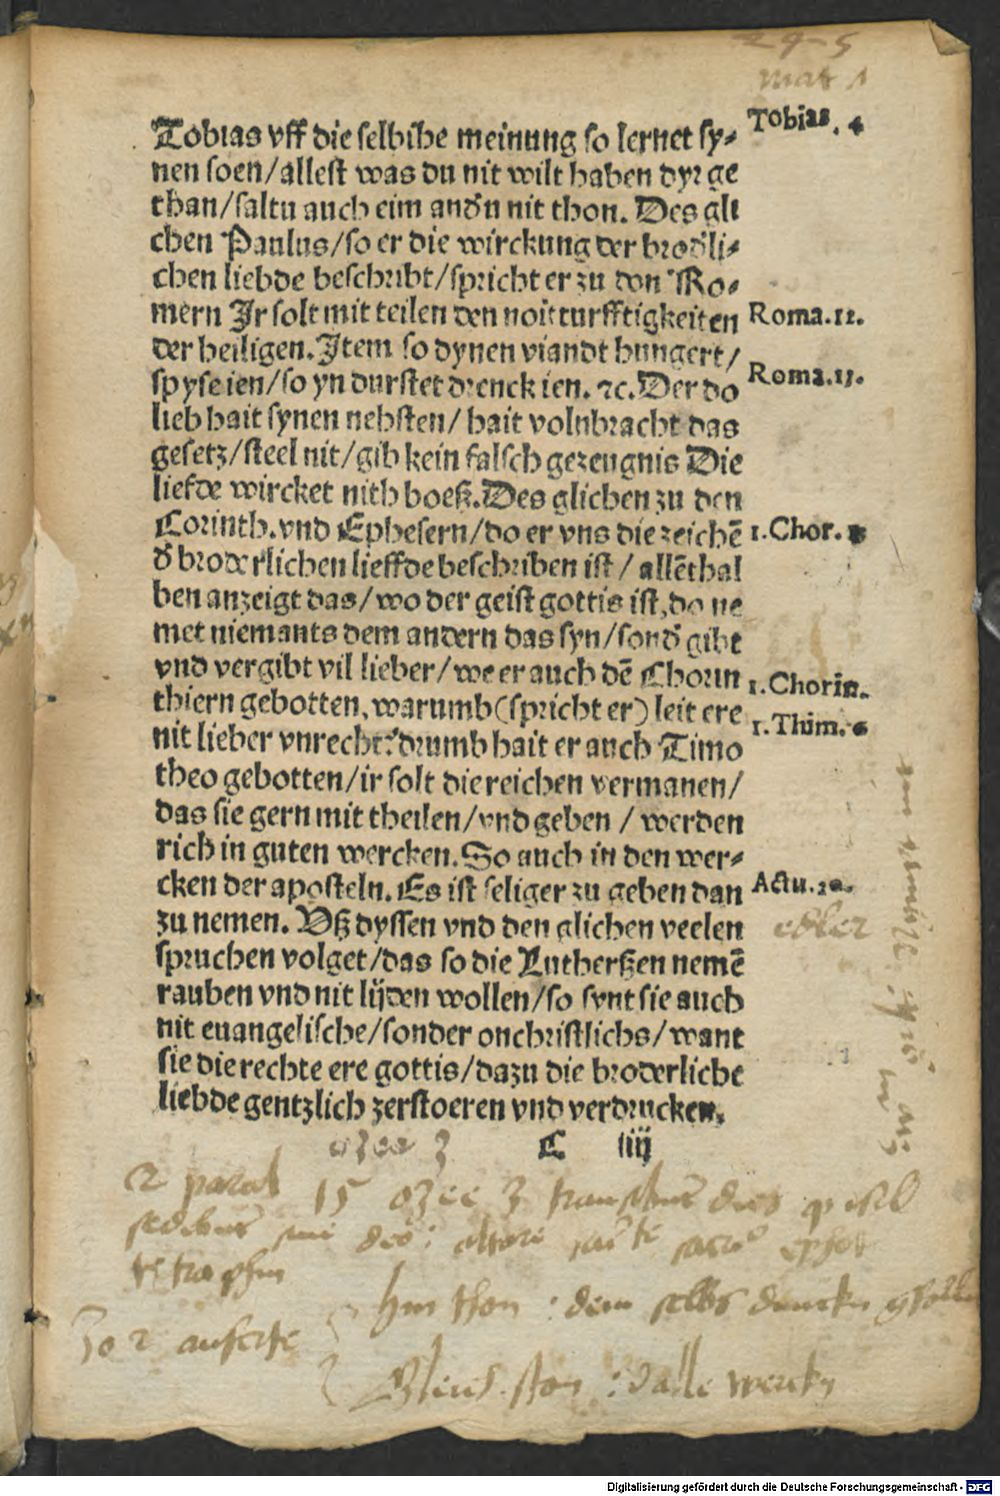 24-5
mat 1
Tobias vff die selbihe meinung so lernet sy⸗ Tobias. 4
nen soen/allest was du nit wilt haben dyr ge
than/saltu auch eim andn̄ nit thon. Des gli
chen Paulus/so er die wirckung der brod̄li⸗
chen liebde beschribt/spricht er zu den Ro⸗
mern Ir solt mit teilen den noitturfftigkeiten Roma.12.
der heiligen. Item so dynen viandt hungert/
spyse ien/so yn durstet drenck ien. ⁊c. Der do Roma.13.
lieb hait synen nehsten/ hait volnbracht das
gesetz/steel nit/gib kein falsch gezeugnis Die
liefde wircket nith boeß. Des glichen zu den
Corinth. vnd Ephesern/do er vns die zeichē 1.Chor.
d̄ broderlichen lieffde beschriben ist / allēthal
ben anzeigt das/wo der geist gottis ist, do ne
met niemants dem andern das syn/sond̄ gibt
vnd vergibt vil lieber/we er auch dē Chorin 1.Chorin.
thiern gebotten, warumb(spricht er) leit ere 1.Thim. 6
nit lieber vnrecht? drumb hait er auch Timo
theo gebotten/ir solt die reichen vermanen/
das sie gern mit theilen/vnd geben / werden
rich in guten wercken. So auch in den wer⸗
cken der aposteln. Es ist seliger zu geben dan Actu.20.
zu nemen. Vß dyssen vnd den glichen veelen edler
spruchen volget/das so die Lutherßen nemē
rauben vnd nit lijden wollen/so synt sie auch
nit euangelische/sonder onchristlichs/want
sie die rechte ere gottis/dazu die broderliche
liebde gentzlich zerstoeren vnd verdrucken.
ozee 3 C iiij
2 paral 15 ozee 3 dies
altare
Jo 2 auferte
thon : dem selbs
: dalle
Digitalisierung gefördert durch die Deutsche Forschungsgemeinschaft - DFG